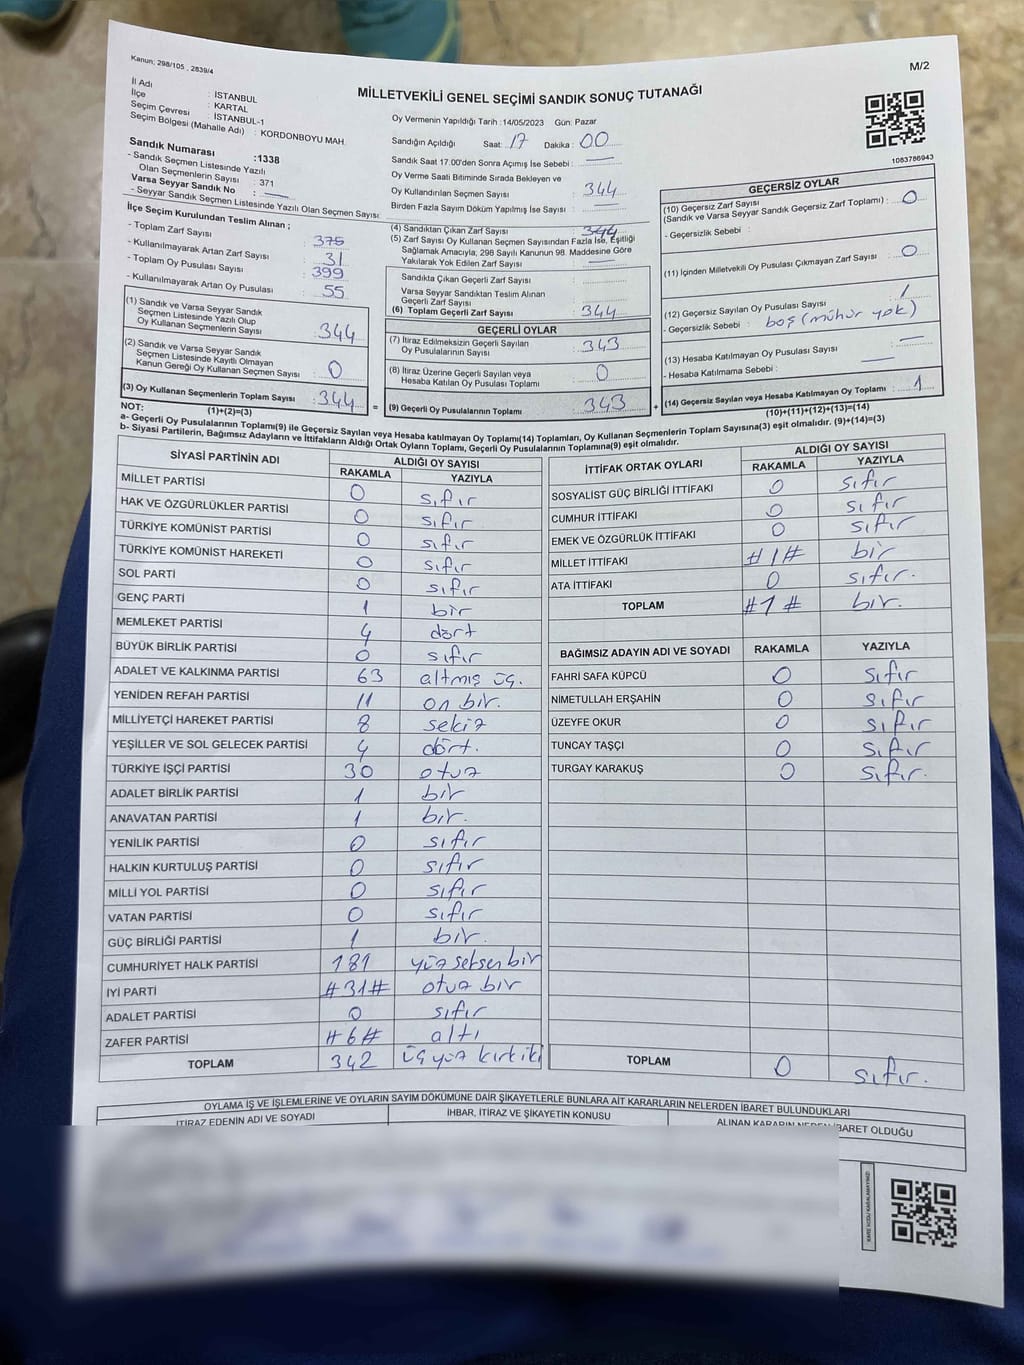 Kanun; 298/105 , 2839/4
M/2
MİLLETVEKİLİ GENEL SEÇİMİ SANDIK SONUÇ TUTANAĞI
İl Adı : İSTANBUL
İlçe : KARTAL
Seçim Çevresi : İSTANBUL-1
Seçim Bölgesi (Mahalle Adı) : KORDONBOYU MAH.
Sandık Numarası :1338
- Sandık Seçmen Listesinde Yazılı
Olan Seçmenlerin Sayısı : 371
Varsa Seyyar Sandık No : —
- Seyyar Sandık Seçmen Listesinde Yazılı Olan Seçmen Sayısı:
İlçe Seçim Kurulundan Teslim Alınan ;
- Toplam Zarf Sayısı : 375
- Kullanılmayarak Artan Zarf Sayısı : 31
- Toplam Oy Pusulası Sayısı : 399
- Kullanılmayarak Artan Oy Pusulası : 55
(1) Sandık ve Varsa Seyyar Sandık
Seçmen Listesinde Yazılı Olup
Oy Kullanan Seçmenlerin Sayısı : 344
(2) Sandık ve Varsa Seyyar Sandık
Seçmen Listesinde Kayıtlı Olmayan
Kanun Gereği Oy Kullanan Seçmen Sayısı : 0
(3) Oy Kullanan Seçmenlerin Toplam Sayısı : 344 =
(1)+(2)=(3)
Oy Vermenin Yapıldığı Tarih :14/05/2023 Gün: Pazar
Sandığın Açıldığı Saat: 17 Dakika : 00
Sandık Saat 17.00'den Sonra Açımış İse Sebebi : —
Oy Verme Saati Bitiminde Sırada Bekleyen ve
Oy Kullandırılan Seçmen Sayısı : 344
Birden Fazla Sayım Döküm Yapılmış İse Sayısı : —
(4) Sandıktan Çıkan Zarf Sayısı : 344
(5) Zarf Sayısı Oy Kullanan Seçmen Sayısından Fazla İse, Eşitliği
Sağlamak Amacıyla, 298 Sayılı Kanunun 98. Maddesine Göre
Yakılarak Yok Edilen Zarf Sayısı : —
Sandıkta Çıkan Geçerli Zarf Sayısı :
Varsa Seyyar Sandıktan Teslim Alınan
Geçerli Zarf Sayısı :
(6) Toplam Geçerli Zarf Sayısı : 344
GEÇERLİ OYLAR
(7) İtiraz Edilmeksizin Geçerli Sayılan
Oy Pusulalarının Sayısı : 343
(8) İtiraz Üzerine Geçerli Sayılan veya
Hesaba Katılan Oy Pusulası Toplamı : 0
(9) Geçerli Oy Pusulalarının Toplamı : 343 +
1083786943
GEÇERSİZ OYLAR
(10) Geçersiz Zarf Sayısı
(Sandık ve Varsa Seyyar Sandık Geçersiz Zarf Toplamı) : 0
- Geçersizlik Sebebi :
(11) İçinden Milletvekili Oy Pusulası Çıkmayan Zarf Sayısı : 0
(12) Geçersiz Sayılan Oy Pusulası Sayısı : 1
- Geçersizlik Sebebi : boş (mühür yok)
(13) Hesaba Katılmayan Oy Pusulası Sayısı : —
- Hesaba Katılmama Sebebi : —
(14) Geçersiz Sayılan veya Hesaba Katılmayan Oy Toplamı : 1
(10)+(11)+(12)+(13)=(14)
NOT:
a- Geçerli Oy Pusulalarının Toplamı(9) ile Geçersiz Sayılan veya Hesaba katılmayan Oy Toplamı(14) Toplamları, Oy Kullanan Seçmenlerin Toplam Sayısına(3) eşit olmalıdır. (9)+(14)=(3)
b- Siyasi Partilerin, Bağımsız Adayların ve İttifakların Aldığı Ortak Oyların Toplamı, Geçerli Oy Pusulalarının Toplamına(9) eşit olmalıdır.
SİYASİ PARTİNİN ADI ALDIĞI OY SAYISI
RAKAMLA YAZIYLA
MİLLET PARTİSİ 0 sıfır
HAK VE ÖZGÜRLÜKLER PARTİSİ 0 sıfır
TÜRKİYE KOMÜNİST PARTİSİ 0 sıfır
TÜRKİYE KOMÜNİST HAREKETİ 0 sıfır
SOL PARTİ 0 sıfır
GENÇ PARTİ 1 bir
MEMLEKET PARTİSİ 4 dört
BÜYÜK BİRLİK PARTİSİ 0 sıfır
ADALET VE KALKINMA PARTİSİ 63 altmış üç.
YENİDEN REFAH PARTİSİ 11 on bir.
MİLLİYETÇİ HAREKET PARTİSİ 8 sekiz
YEŞİLLER VE SOL GELECEK PARTİSİ 4 dört.
TÜRKİYE İŞÇİ PARTİSİ 30 otuz
ADALET BİRLİK PARTİSİ 1 bir
ANAVATAN PARTİSİ 1 bir.
YENİLİK PARTİSİ 0 sıfır
HALKIN KURTULUŞ PARTİSİ 0 sıfır
MİLLİ YOL PARTİSİ 0 sıfır
VATAN PARTİSİ 0 sıfır
GÜÇ BİRLİĞİ PARTİSİ 1 bir.
CUMHURİYET HALK PARTİSİ 181 yüz seksen bir
İYİ PARTİ #31# otuz bir
ADALET PARTİSİ 0 sıfır
ZAFER PARTİSİ #6# altı
TOPLAM 342 üç yüz kırk iki
İTTİFAK ORTAK OYLARI ALDIĞI OY SAYISI
RAKAMLA YAZIYLA
SOSYALİST GÜÇ BİRLİĞİ İTTİFAKI 0 sıfır
CUMHUR İTTİFAKI 0 sıfır
EMEK VE ÖZGÜRLÜK İTTİFAKI 0 sıfır
MİLLET İTTİFAKI #1# bir
ATA İTTİFAKI 0 sıfır.
TOPLAM #1# bir.
BAĞIMSIZ ADAYIN ADI VE SOYADI RAKAMLA YAZIYLA
FAHRİ SAFA KÜPCÜ 0 sıfır
NİMETULLAH ERŞAHİN 0 sıfır
ÜZEYFE OKUR 0 sıfır
TUNCAY TAŞÇI 0 sıfır
TURGAY KARAKUŞ 0 sıfır.
TOPLAM 0 sıfır.
OYLAMA İŞ VE İŞLEMLERİNE VE OYLARIN SAYIM DÖKÜMÜNE DAİR ŞİKAYETLERLE BUNLARA AİT KARARLARIN NELERDEN İBARET BULUNDUKLARI
İTİRAZ EDENİN ADI VE SOYADI İHBAR, İTİRAZ VE ŞİKAYETİN KONUSU ALINAN KARARIN NEDEN İBARET OLDUĞU